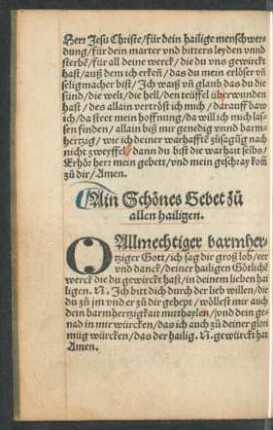 Herr Jesu Christe/für dein hailige menschwer-
dung/für dein marter vnd bittern leyden vnnd
sterbē/für all deine werck/die du vns gewirckt
hast/auß dem ich erkeñ/das du mein erlöser vñ
seligmacher bist/Ich waiß vñ glaub das du die
sünd/die welt/die hell/den teüffel überwunden
hast/des allain vertröst ich mich/darauff baw
ich/da steet mein hoffnung/da will ich mich las-
sen finden/allain biß mir genedig vnnd barm-
hertzig/wie ich deiner warhafftē zůsagūg nach
nicht zweyffel/dann du bist die warhait selbs/
Erhör herr mein gebett/vnd mein geschray kom̄
zů dir/Amen.
Ain Schönes Gebet zů
allen hailigen.
O Allmechtiger barmher-
tziger Gott/ich sag dir groß lob/eer
vnd danck/deiner hailigen Götliche
werck die du gewirckt hast/in deinem lieben hai
ligen. N. Ich bitt dich durch der lieb willen/die
du zů jm vnd er zů dir gehept/wöllest mir auch
dein barmhertzigkait mitthaylen/vnd dein ge-
nad in mir würcken/das ich auch zů deiner glori
müg würcken/das der hailig. N. gewürckt hat
Amen.